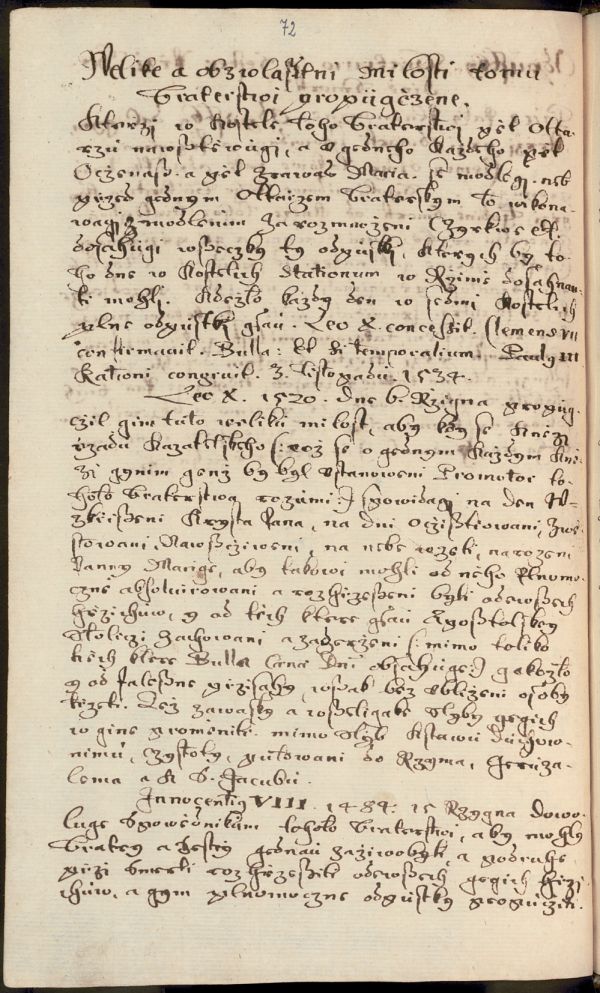 72
Welike a obzwlasstni Milosti tomu
bratrstwi propůgczene.
Kterzi w Kostele tohо bratrstwi pět Olta-
rzů nawsstěwugi, a v gednoho každeho pět
Otczenass a pět Zdrawas Maria se modlegi, neb
przed gednym Oltarzem bratrskym to wykona-
wagi z modlenim za rozmnożeni Czyrkwe etc.
dosahugi wsseczky ty odpustki, kterych by to-
ho dne w Kostelich Stationum w Rzimě dosahnau-
ti mohli. Adežto każdy den w sedmi Kostelich
plne odpustki gsau. Leo X. concessit. Clemens VII
confirmavit. Bulla: Et si temporalium. Paulus III
Rationi congruit. 3. listopadu 1534.
Leo X. 1520. dne 6. Rzigna propůg-
czil gim tuto weliku milost, aby kdy se Knězi
rzadu Kazatelskeho (: coż se o gednym każdym Kně-
zi gynim genż by byl vstanoweni Promotor to-
hoto bratrstwa rozumi :) spowidagi na den W-
zkrzisseni Krysta Pana, na dni Oczisstiowani, Zwě-
stowani, Nawsstiweni, na nebe wzeti, narozeni
Panny Marige, aby takowi mohli od něho plnomo-
czně absolwirowani a rozhrzesseni byti odewssech
hrzichůw, y od těch ktere gsau Aposstolskey
Stoliczi zachowani a zadrzeni (: mimo toliko
těch ktere Bulla Cænæ Dni obsahuge :) gakożto
y od falessne przisahy, wssak bez vbliżeni osoby
trzeti. Też zawazky a wsseligake Sliby gegich
w gine promeniti mimo Slib kstawu duchow-
nimu, czystoty, putowani do Rzyma, Jeruza-
lema a k S. Jacubu.
Innocentius VIII. 1484. 15 Rzygna dowo-
luge Spowědnikům tohoto bratrstwi, aby mohly
bratry a Sestry gednau zażiwobyti, a podruhe
przi Smrti rozhrzessiti odewssech gegich hrzi-
chůw, a gym plnomoczne odpustky propůgcziti.